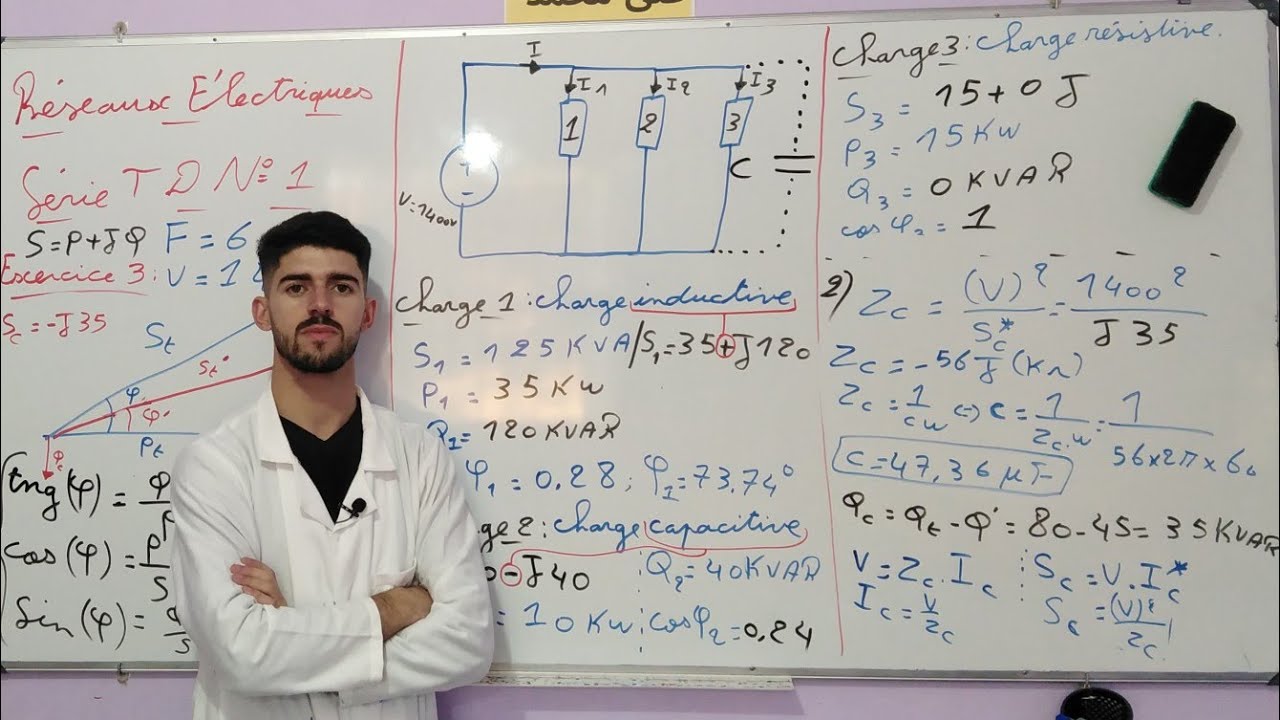 Réseaux Électriques
Série TD N° 1
S=P+JQ F=6
Excercice 3: V=12
Sc=-J35
St
St'
φ
φ'
Pt
Qc
tng(φ)=Q/P
cos(φ)=P/S
Sin(φ)=Q/S
I
I1 I2 I3
1 2 3
+
-
C
V=1400v
Charge 1: charge inductive
S1=125KVA/S1=35+J120
P1=35Kw
Q1=120KVAR
φ1=0,28; φ1=73,74°
rge 2: charge capacitive
0-J40 Q2=40KVAR
=10Kw cosφ2=0,24
Charge 3: charge résistive.
S3=15+0J
P3=15Kw
Q3=0KVAR
cosφ2=1
2) Zc=(V)²/Sc*=1400²/J35
Zc=-56J(KΩ)
Zc=1/cw <=> c=1/Zc.w=1/56x2πx60
C=47,36μF
Qc=Qt-Q'=80-45=35KVAR
V=Zc.Ic Sc=V.Ic*
Ic=V/Zc Sc=(V)²/Zc